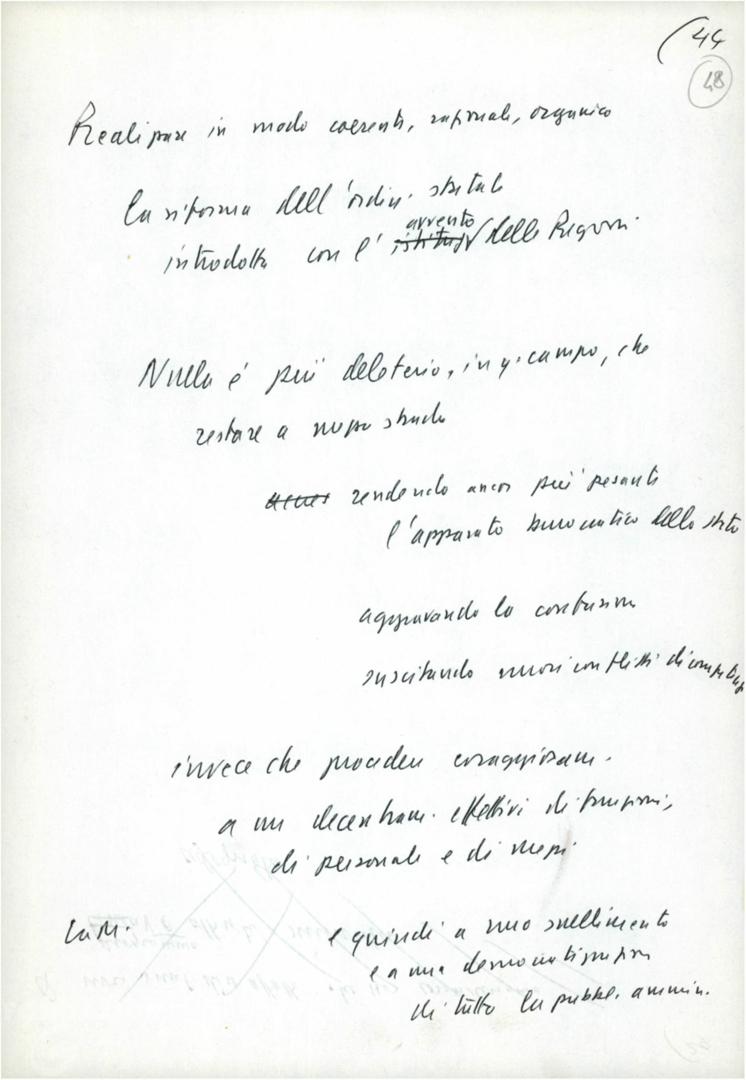 (44
48
Realizzare in modo coerente, razionale, organico
la riforma dell'ordin. statale
avvento
introdotta con l' istituz delle Regioni.
Nulla è più deleterio, in q. campo, che
restare a mezza strada
rendendo ancor più pesante
l'apparato burocratico dello stato
aggravando la confusione
suscitando nuovi conflitti di competenza
invece che procedere coraggiosam.
a un decentram. effettivo di funzioni,
di personale e di mezzi
e quindi a uno snellimento
e a una democratizzazione
di tutta la pubbl. ammin.